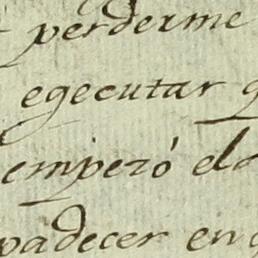 perderme
egecutar
empezó el
padecer en